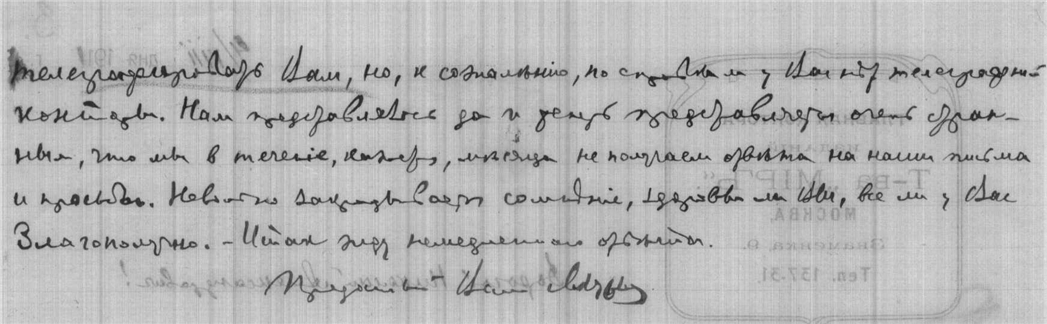 телеграфировать Вам, но, к сожалѣнію, по справкам у Вас нѣт телеграфной
конторы. Нам представлялось да и теперь представляется очень стран-
ным, что мы в теченіе, кажется, мѣсяца не получаем отвѣта на наши письма
и просьбы. Невольно закрадывается сомнѣніе, здоровы ли Вы, все ли у Вас
благополучно. – Итак жду немедленного отвѣта.
Преданный Вам
Т-ва „МІРЪ“.
МОСКВА,
Знаменка, 9.
Тел. 137-31.